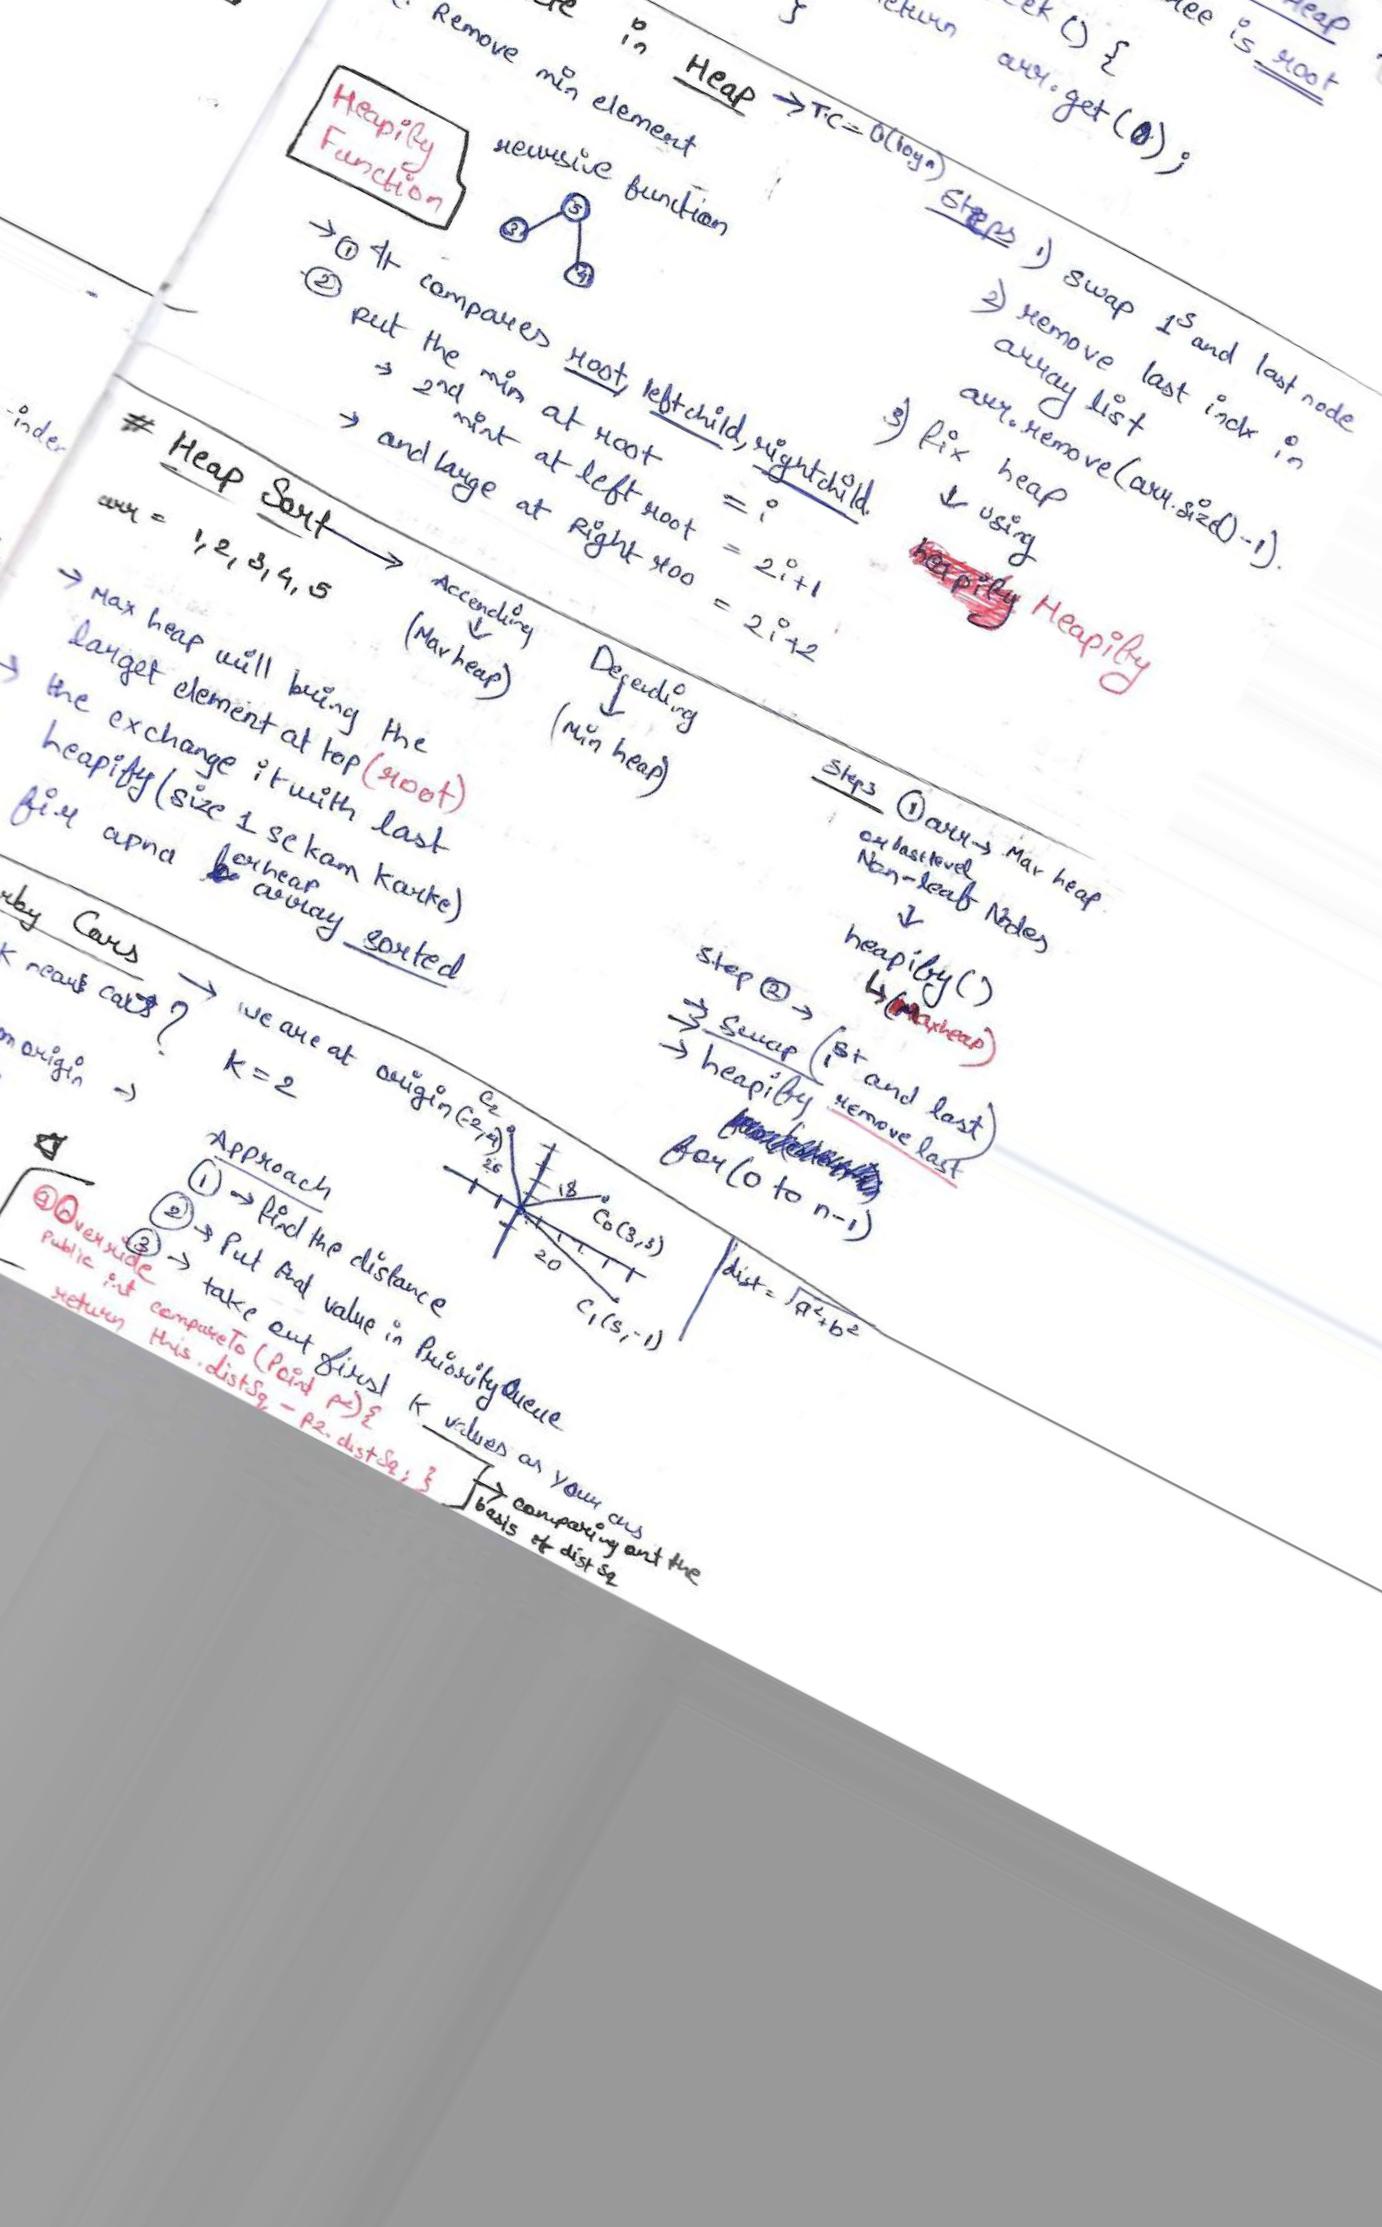 Heap
ee is root
eek () {
return arr.get(0);
}
in Heap → TC = O(logn)
Remove min element
Heapify
Function
recursive function
→ ① It compares root, left child, right child.
② Put the min at root = i
→ 2nd mint at left root = 2i+1
→ and large at Right roo = 2i+2
Steps 1) Swap 1s and last node
2) remove last indx in
array list
arr.remove(arr.size()-1).
3) fix heap
↓ using
heapify Heapify
-inder
# Heap Sort → Accending
↓
(Max heap)
Decending
↓
(Min heap)
arr = 1, 2, 3, 4, 5
→ Max heap will bring the
larget element at top (root)
→ the exchange it with last
heapify (size 1 se kam karke)
fir apna
array sorted
Steps ① arr → Max heap.
Non-leaf Nodes
↓
heapify()
↳ (Maxheap)
Step ② →
→ Swap (1st and last)
→ heapify remove last
for (0 to n-1)
rby Cars → we are at origin
K nears cars?
K = 2
m origin →
C2
(-2,4)
26
18
C0 (3,3)
20
C1 (5,-1)
dist = √a²+b²
Approach
① → find the distance
② → Put that value in PriorityQueue
③ → take out first K values as your ans
@Override
Public int compareTo (Point p2) {
return this.distSq - p2.distSq; }
→ comparing ont the
basis of distSq